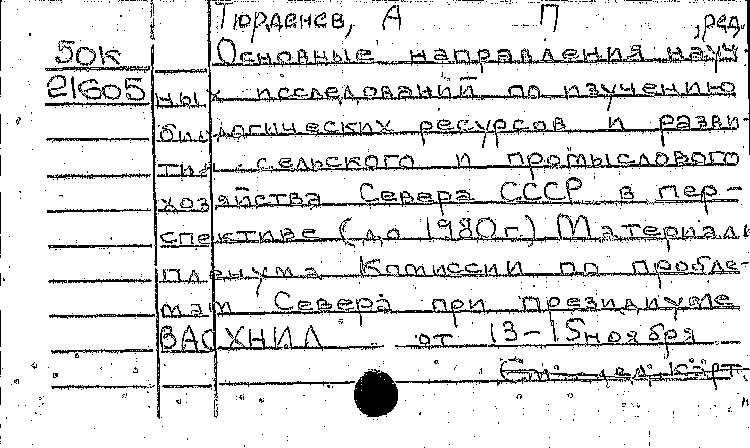 Тюрденев, А П ,ред.
50к Основные направления науч
21605 ных исследований по изучению
биологических ресурсов и разви-
тия сельского и промыслового
хозяйства Севера СССР в пер-
спективе (до 1980г.) Материалы
пленума Комиссии по пробле-
мам Севера при президиуме
ВАСХНИЛ от 13-15 ноября
См. след. карт.